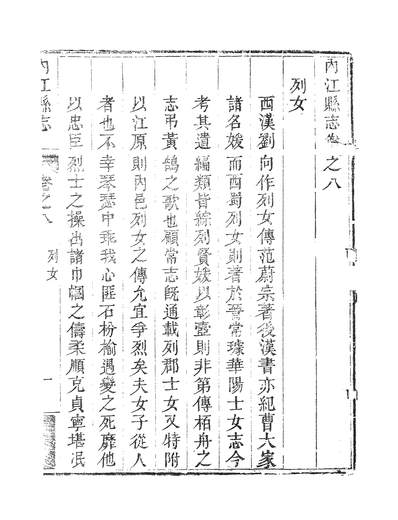 內江縣志卷之八
列女
西漢劉向作列女傳范蔚宗著後漢書亦紀曹大家
諸名媛而西蜀列女則著於晉常璩華陽士女志今
考其遺編類皆綜列賢媛以彰壼則非第傳栢舟之
志弔黃鵠之歌也顧常志旣通載列郡士女又特附
以江原則內邑列女之傳允宜爭烈矣夫女子從人
者也不幸琴瑟中乖我心匪石枌榆遇變之死靡他
以忠臣烈士之操出諸巾幗之儔柔順克貞寧堪泯
內江縣志
卷之八
列女
一